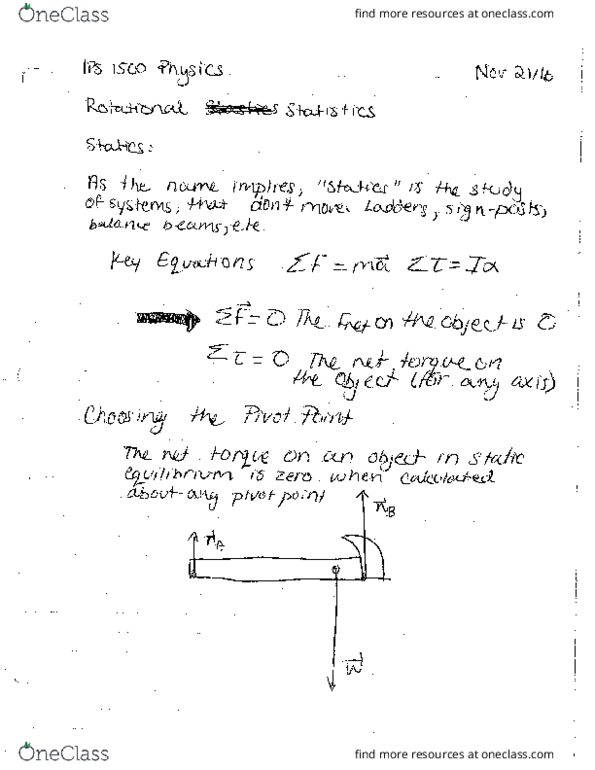 OneClass
find more resources at oneclass.com
IPS 1500 Physics
Nov 21/16
Rotational Statistics
Statics:
As the name implies, "statics" is the study
of systems, that don't move. Ladders, sign-posts,
balance beams, etc.
Key Equations ΣF⃗ = ma⃗ Στ = Iα
ΣF⃗ = 0 The Fnet on the object is 0
Στ = 0 The net torque on
the object (for any axis)
Choosing the Pivot Point
The net torque on an object in static
equilibrium is zero when calculated
about any pivot point
n⃗B
n⃗A
W⃗
OneClass
find more resources at oneclass.com